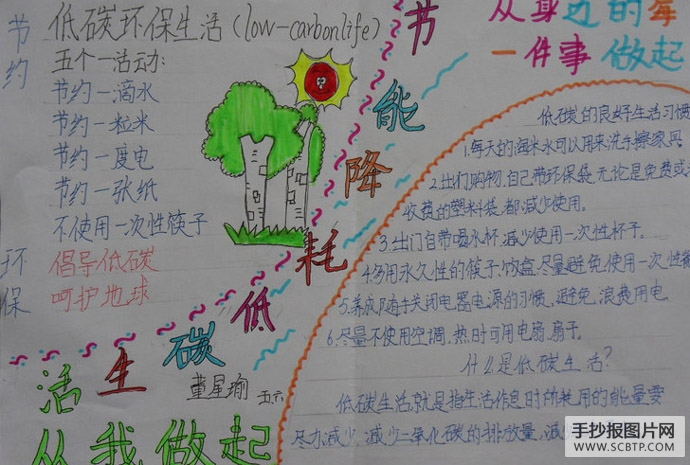 节约
环保
低碳环保生活(low-carbonlife)
五个一活动:
节约一滴水
节约一粒米
节约一度电
节约一张纸
不使用一次性筷子
倡导低碳
呵护地球
节能降耗
低碳生活
从我做起
董星瑜 五六
从身边的每
一件事 做起
低碳的良好生活习惯
1.每天的淘米水可以用来洗手擦家具
2.出门购物,自己带环保袋,无论是免费或
收费的塑料袋,都减少使用。
3.出门自带喝水杯,减少使用一次性杯子。
4.多用永久性的筷子,饭盒,尽量避免使用一次性
5.养成随手关闭电器电源的习惯,避免浪费用电
6.尽量不使用空调,热时可用电扇,扇子。
什么是低碳生活?
低碳生活就是指生活作息时所耗用的能量要
尽力减少,减少二氧化碳的排放量,减
手抄报图片网
WWW.SCBTP.COM